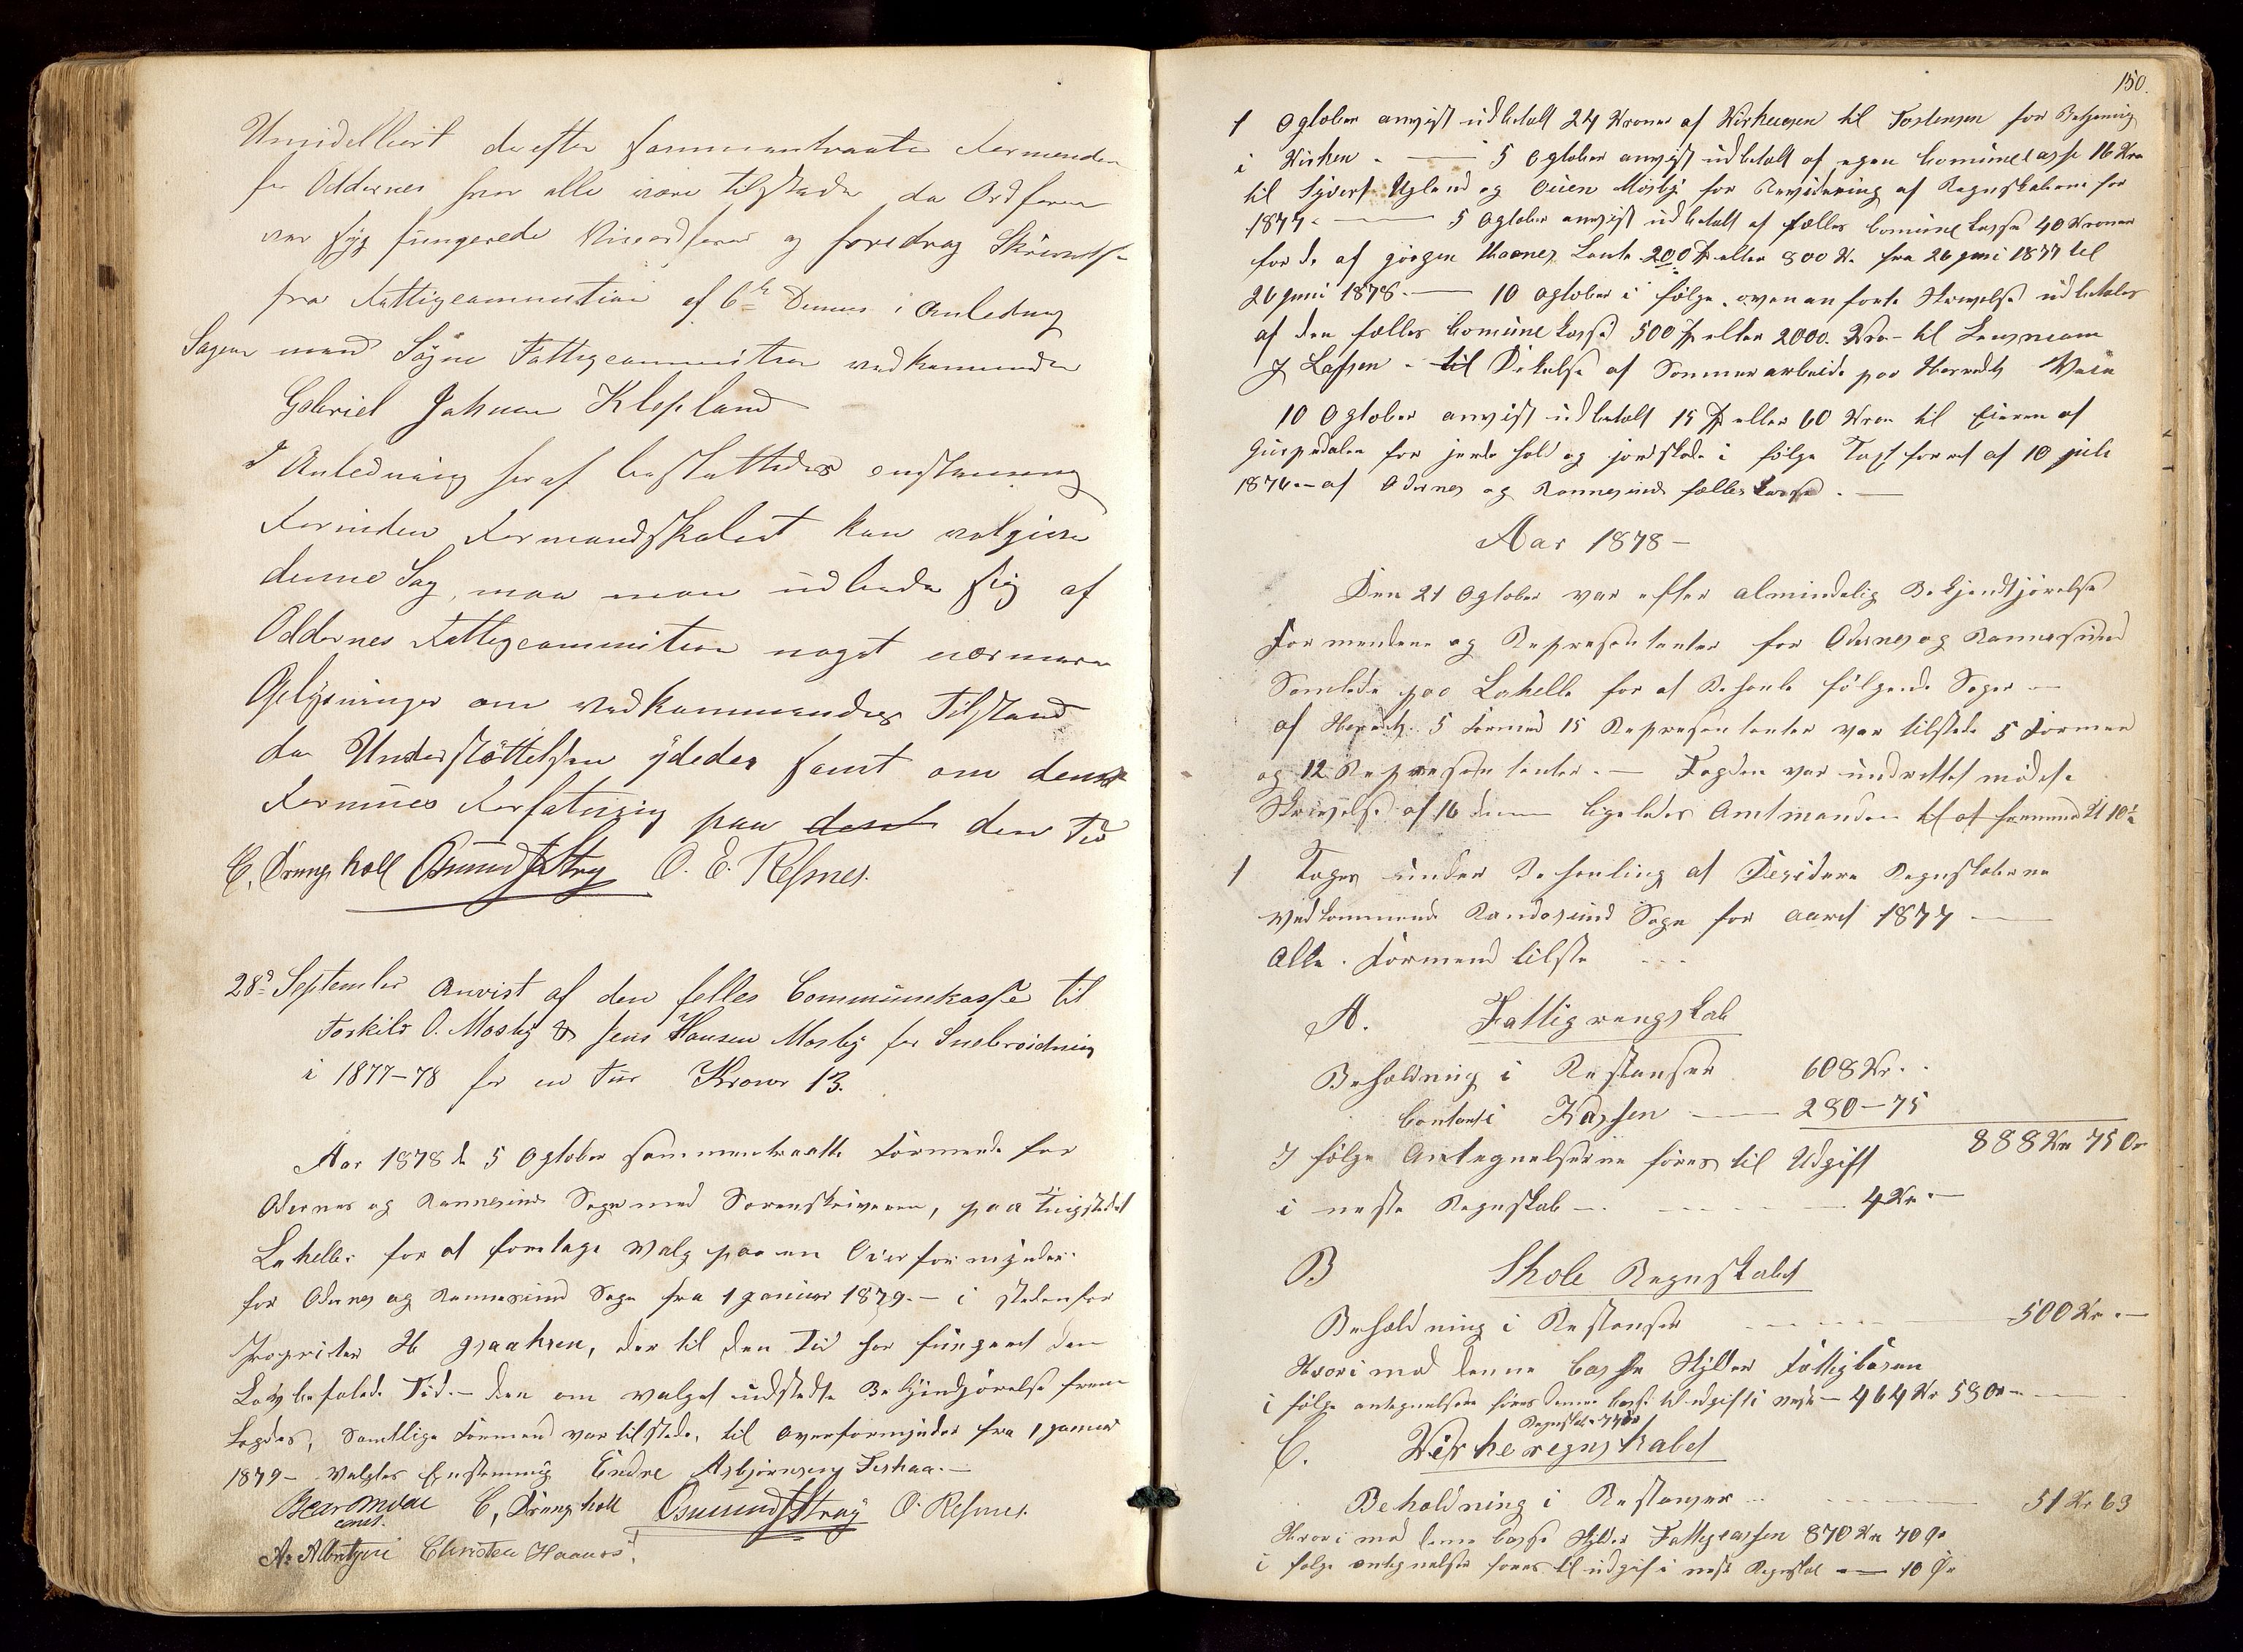 Umidelbart derefter sammentraate Formenden
for Oddernes hvor alle vare tilstede da Ordføren
var syg fungerede Viceordfører og foredrog Skrivelse
fra Fattigcommition af 6te Dennes i Anledning
Sagen med Søgne Fattigcommition vedkommende
Gabriel Johnsen Klepland
I Anledning heraf besluttedes enstemmig
Forinden Formandskabet kan avlgiøre
denne Sag, maa man udbede sig af
Oddernes Fattigcommition noget nærmere
Oplysninger om vedkommendes Tilstand
da Understøttelsen ydedes samt om dennes
Formues Forfatning paa den Tid
C. Drangsholt Osmund J Stray O. E. Resmes.
28de September Anvist af den felles Communekasse til
Torkild O. Mosby & Jens Hansen Mosby for Snebrøidning
i 1877-78 for en Tur Kroner 13.
Aar 1878 d 5 Ogtober sammentraatte Formende for
Odernes og Rannesund Sogn med Sorenskriveren, paa Tingstedet
Lahelle: for at foretage valg paa en Overformynder
for Odernes og Rannesund Sogn fra 1 Januar 1879. — i stedenfor
Propritær H Isaaksen, der til den Tid har fungeret den
Lovbefalede Tid. — den om valget udstedte Bekjendgjørelse frem-
lagdes, Samtlige Formend var tilstede, til Overformynder fra 1 Januar
1879 — valgtes Enstemmig Endre Asbjørnsen Foskaa. —
C. Drangsholt Osmund J Stray O. Resmes.
const.
Christen Haanes.
150.
1 Ogtober anvist udbetalt 24 Kroner af Kirkecassen til Tostensen for Betjening
i Kirken. — 5 Ogtober anvist udbetalt af egen Comunecasse 16 Kro
til Syvert Ugland og Ouen Mosby for Revidering af Regnskaberne for
1877. — 5 Ogtober anvist udbetalt af fælles Comune Kasse 40 Kroner
for de af Jørgen Haanes Laante 200 Spd eller 800 Kr. fra 26 Juni 1877 til
26 Juni 1878. — 10 Ogtober i følge ovenanførte Skrivelse udbetales
af den fælles Comune Kasse 500 Spd eller 2000. Kro — til Lensmann
J Lassen - til Dekelse af Sommerarbeide paa Herreds Veie
10 Ogtober anvist udbetalt 15 Spd eller 60 Kron til Eieren af
for jerdehold og jordskade i følge Taxtforret af 10 juli
1876 — af Odernes og Rannesunds fælles Kasse. —
Aar 1878 —
Den 21 Ogtober var efter almindelig Bekjendtjørelse
Formendene og Representanter for Odernes og Rannesund
Samlede paa Lahelle for at Behanle følgende Sager —
af Hereds 5 Formend 15 Representanter var tilstede 5 Formend
og 12 Representanter. — Fogden var underettet
Skrivelse af 16 dennes ligeledes Amtmanden
1 Toges under Behanling at Desidere Regnskaberne
vedkommende Randesund Sogn for aaret 1877 —
Alle Formend tilste ...
A. Fattigrengskab
Beholdning i Restanser 608 Kr.
Contant i Kassen — 280 — 75
888 Kr 75 Ør
I følge Antegnelserne føres til Udgift
i neste Regnskab — 4 Kr. —
B Skole Regnskabet
Beholdning i Restanser 500 Kr. —
Hvorimod denne Casse Skylder Fattigkasen
i følge antegnelsen føres denne Casse til udgift i neste — 464 Kr 58 Ør —
Regnskab
C. Kirkeregnskabet
Beholdning i Restanser — 51 Kr 63
Hvorimod denne Casse Skylder Fattigcassen 870 Kr 70 Ør
i følge antegnelser føres til udgift i neste Regnskab — 10 Ør